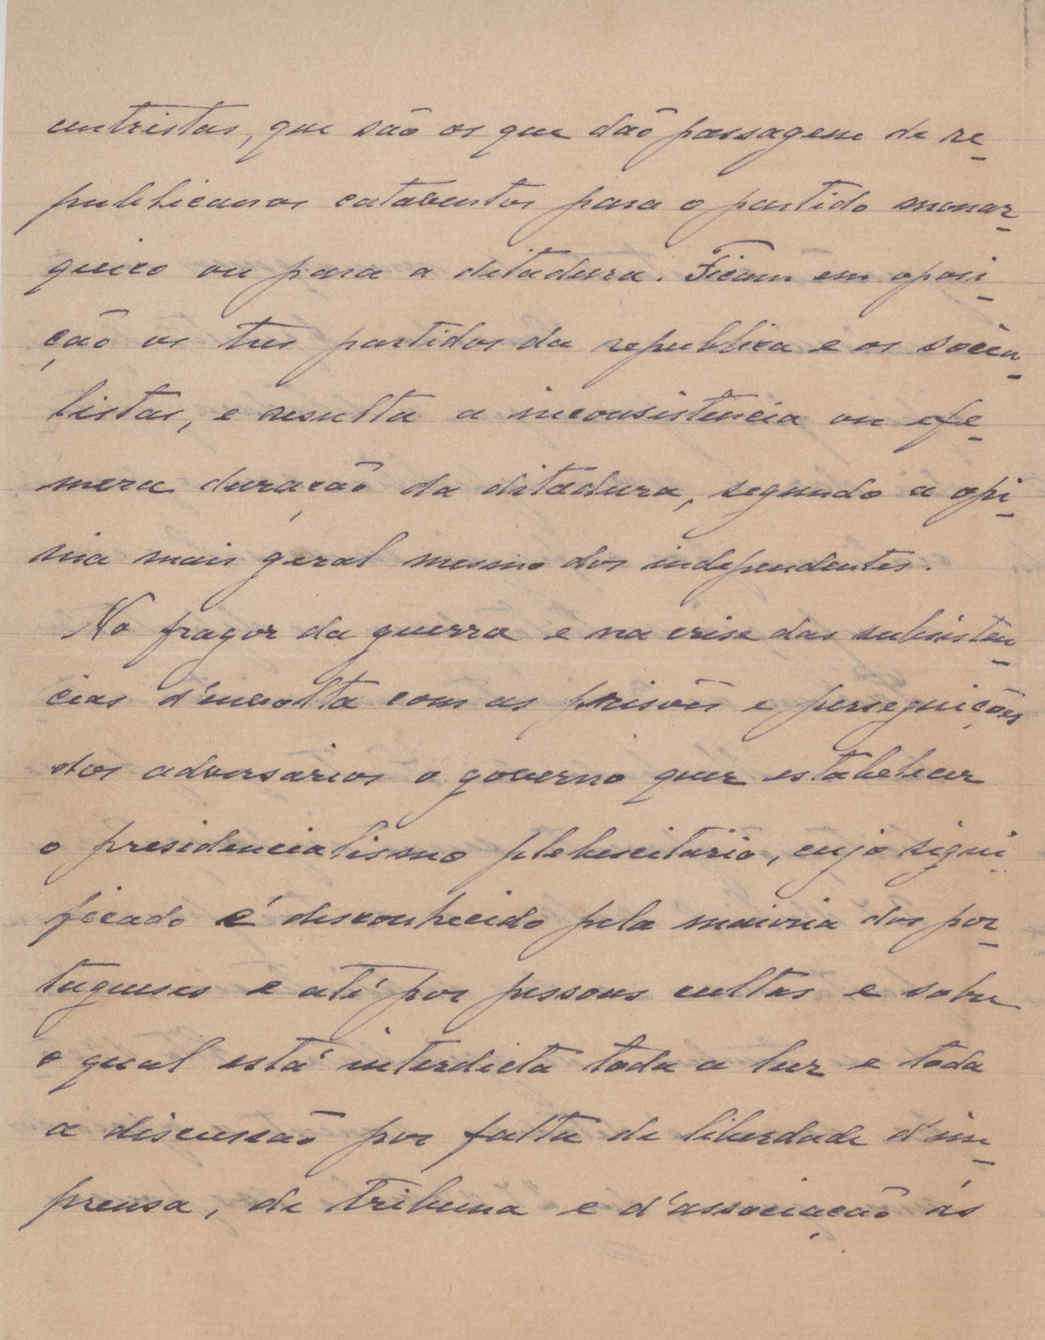 centristas, que são os que dão passagem de re-
publicanos cataventos para o partido monar-
quico ou para a ditadura. Ficam em oposi-
ção os tres partidos da republica e os socia-
listas, e resulta a inconsistencia ou efe-
mera duração da ditadura, segundo a opi-
nia mais geral mesmo dos independentes.
No fragor da guerra e na crise das subsisten-
cias d'envolta com as prisões e perseguições
dos adversarios o governo quer estabelecer
o presidencialismo plebiscitário, cujo signi-
ficado é desconhecido pela maioria dos por-
tugueses e até por pessoas cultas e sobre
o qual está interdicta toda a luz e toda
a discussão por falta de liberdade d'im-
prensa, de tribuna e d'associação ás